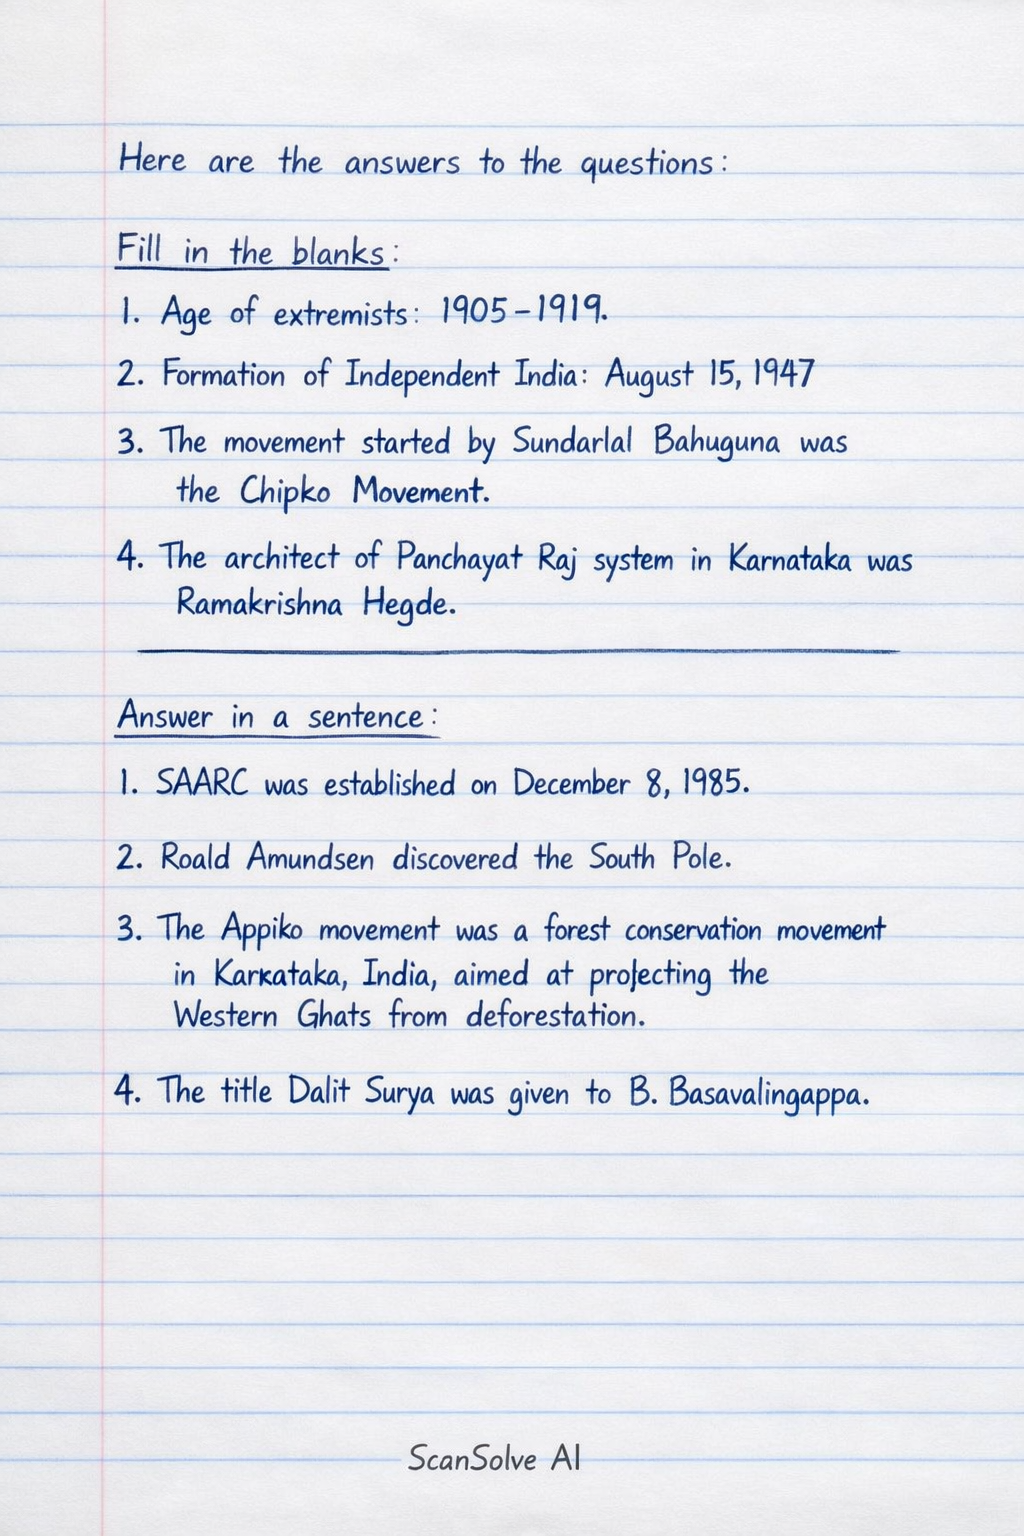 Here are the answers to the questions:
Fill in the blanks:
1. Age of extremists: 1905-1919.
2. Formation of Independent India: August 15, 1947
3. The movement started by Sundarlal Bahuguna was
the Chipko Movement.
4. The architect of Panchayat Raj system in Karnataka was
Ramakrishna Hegde.
Answer in a sentence:
1. SAARC was established on December 8, 1985.
2. Roald Amundsen discovered the South Pole.
3. The Appiko movement was a forest conservation movement
in Karkataka, India, aimed at projecting the
Western Ghats from deforestation.
4. The title Dalit Surya was given to B. Basavalingappa.
ScanSolve AI